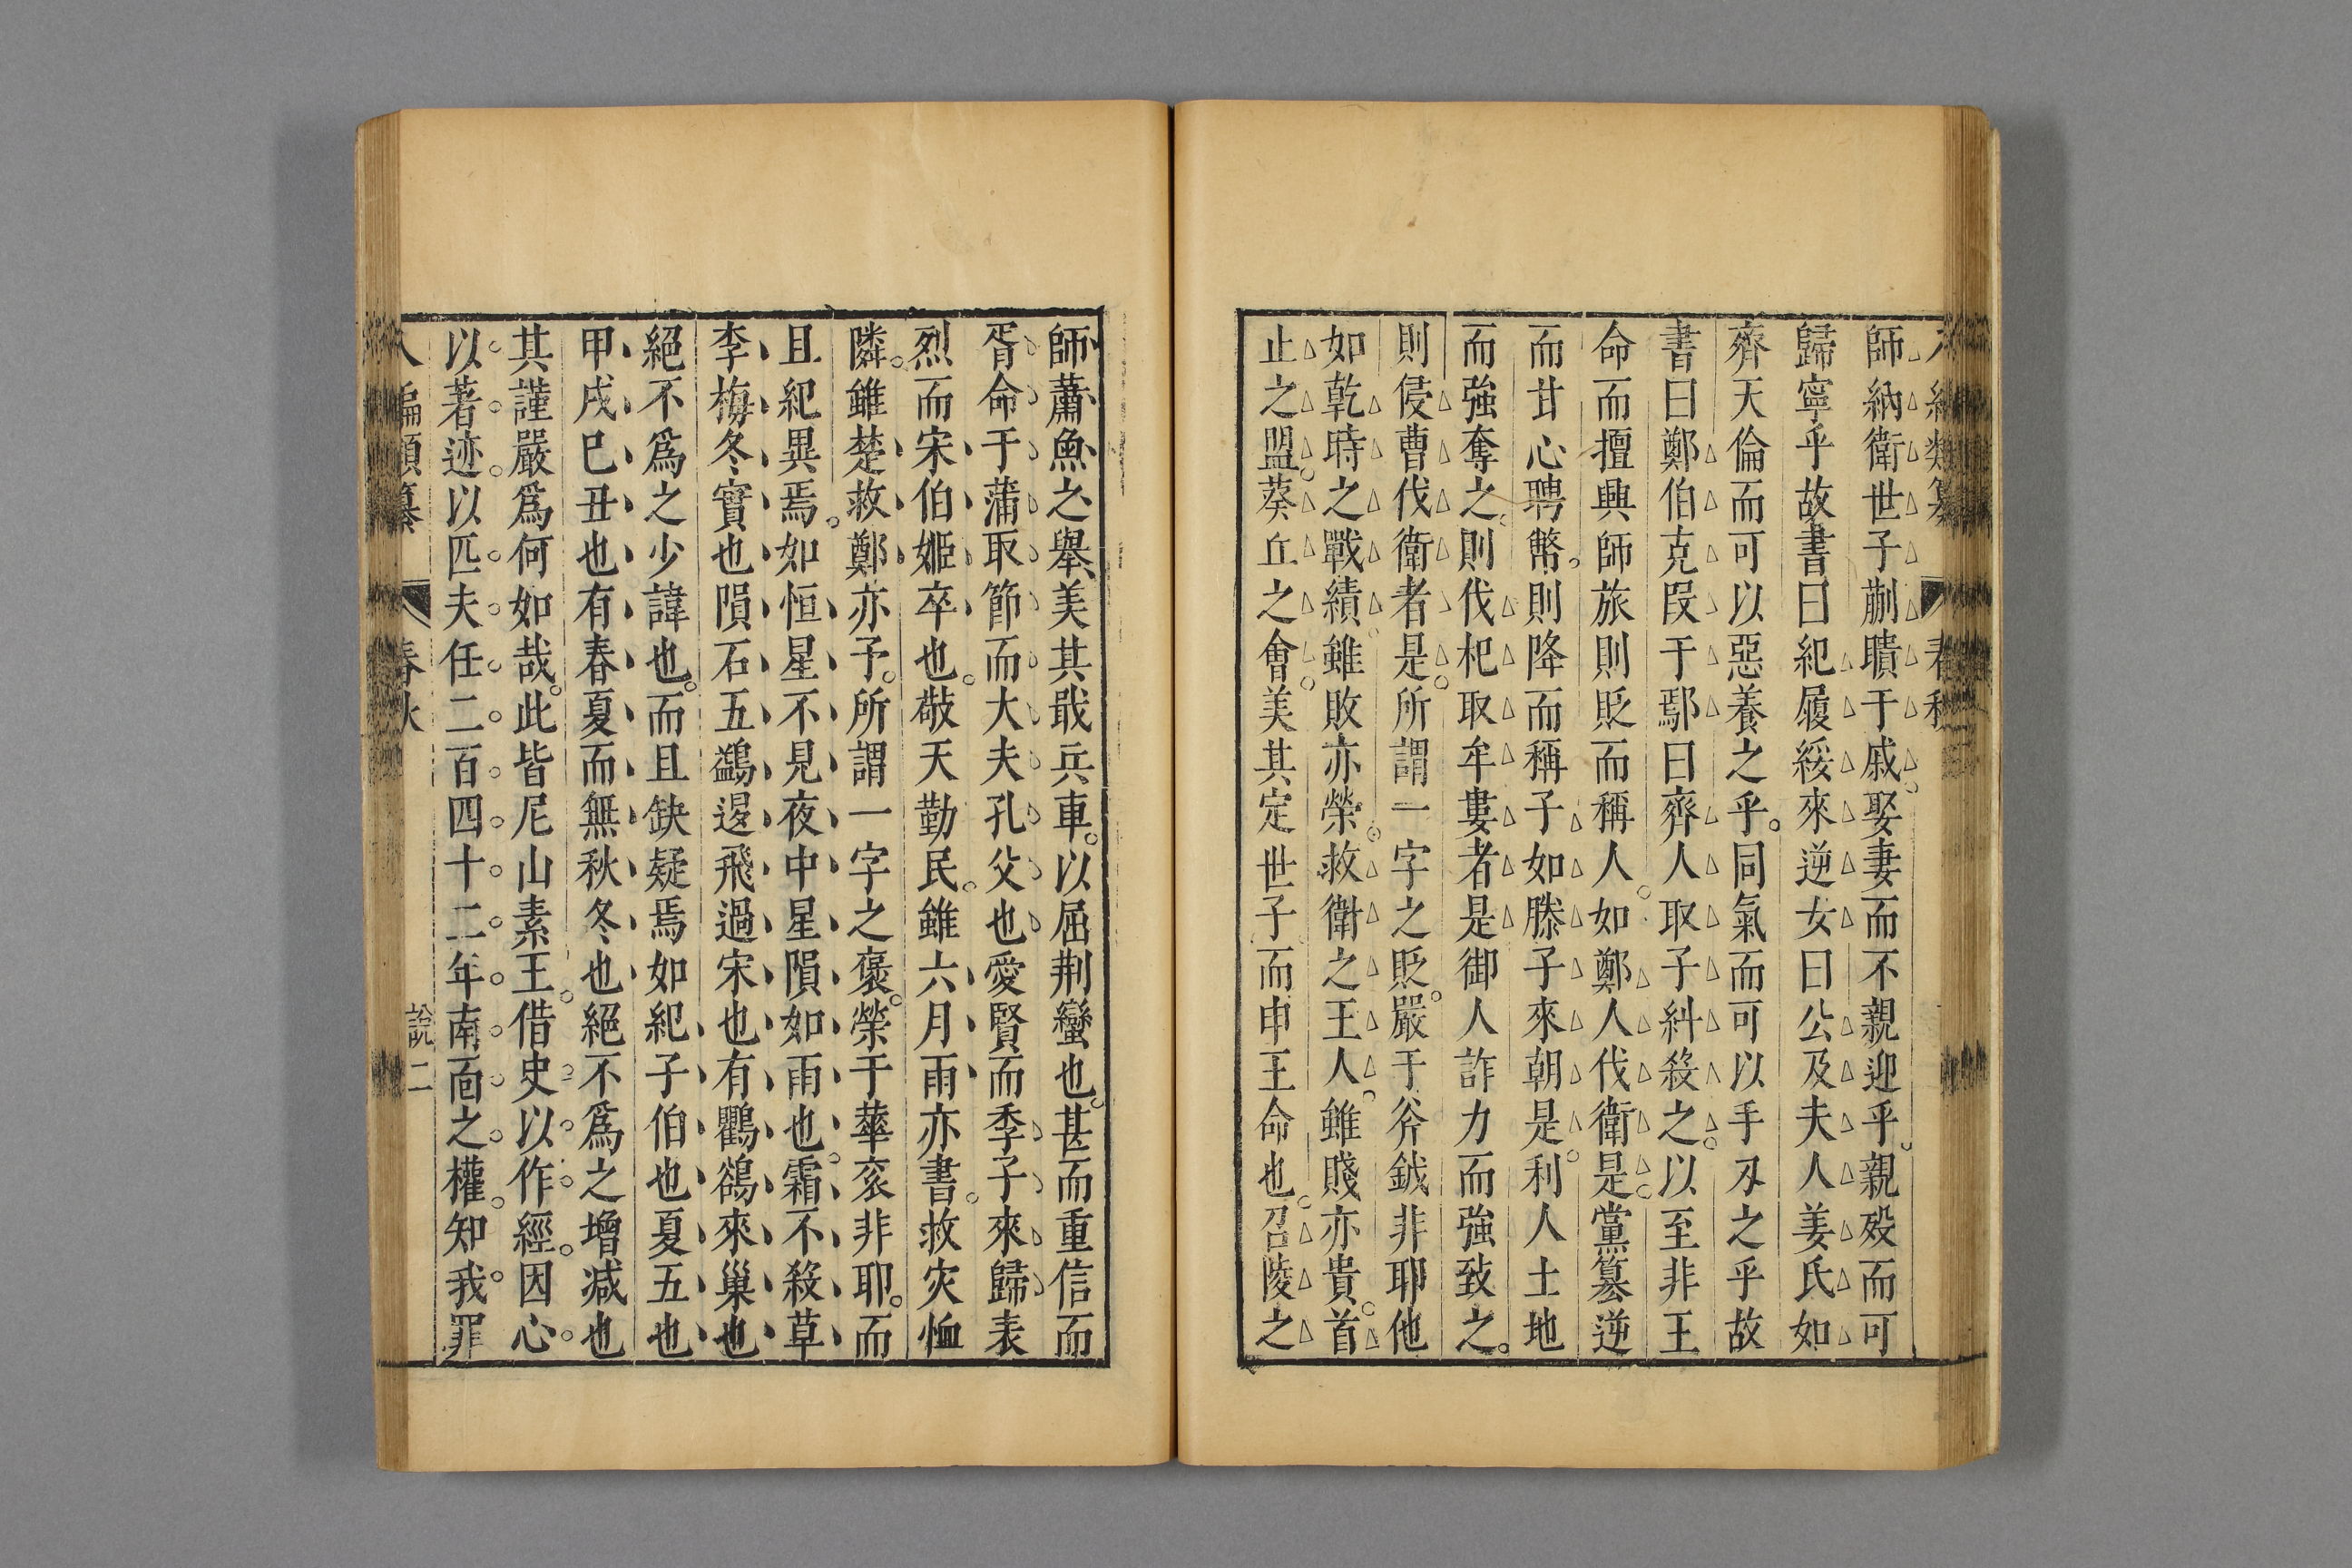 師納衛世子蒯聵于戚娶妻而不親迎乎親殁而可
歸寧乎故書曰紀履綏來逆女曰公及夫人姜氏如
齊天倫而可以惡養之乎同氣而可以手刄之乎故
書曰鄭伯克段于鄢曰齊人取子糾殺之以至非王
命而擅興師旅則貶而稱人如鄭人伐衛是黨簒逆
而甘心聘幣則降而稱子如滕子來朝是利人土地
而強奪之則伐杞取牟婁者是御人詐力而強致之
則侵曹伐衛者是所謂一字之貶嚴于斧鉞非耶他
如乾時之戰績雖敗亦榮救衛之王人雖賤亦貴首
止之盟葵丘之會美其定世子而申王命也召陵之
師蕭魚之舉美其戢兵車以屈荆蠻也甚而重信而
胥命于蒲取節而大夫孔父也愛賢而季子來歸表
烈而宋伯姬卒也敬天勤民雖六月雨亦書救灾恤
隣雖楚救鄭亦予所謂一字之褒榮于華衮非耶而
且紀異焉如恒星不見夜中星隕如雨也霜不殺草
李梅冬實也隕石五鷁退飛過宋也有鸜鵒來巢也
絕不爲之少諱也而且缺疑焉如紀子伯也夏五也
甲戌巳丑也有春夏而無秋冬也絕不爲之增減也
其謹嚴爲何如哉此皆尼山素王借史以作經因心
以著迹以匹夫任二百四十二年南面之權知我罪
說二